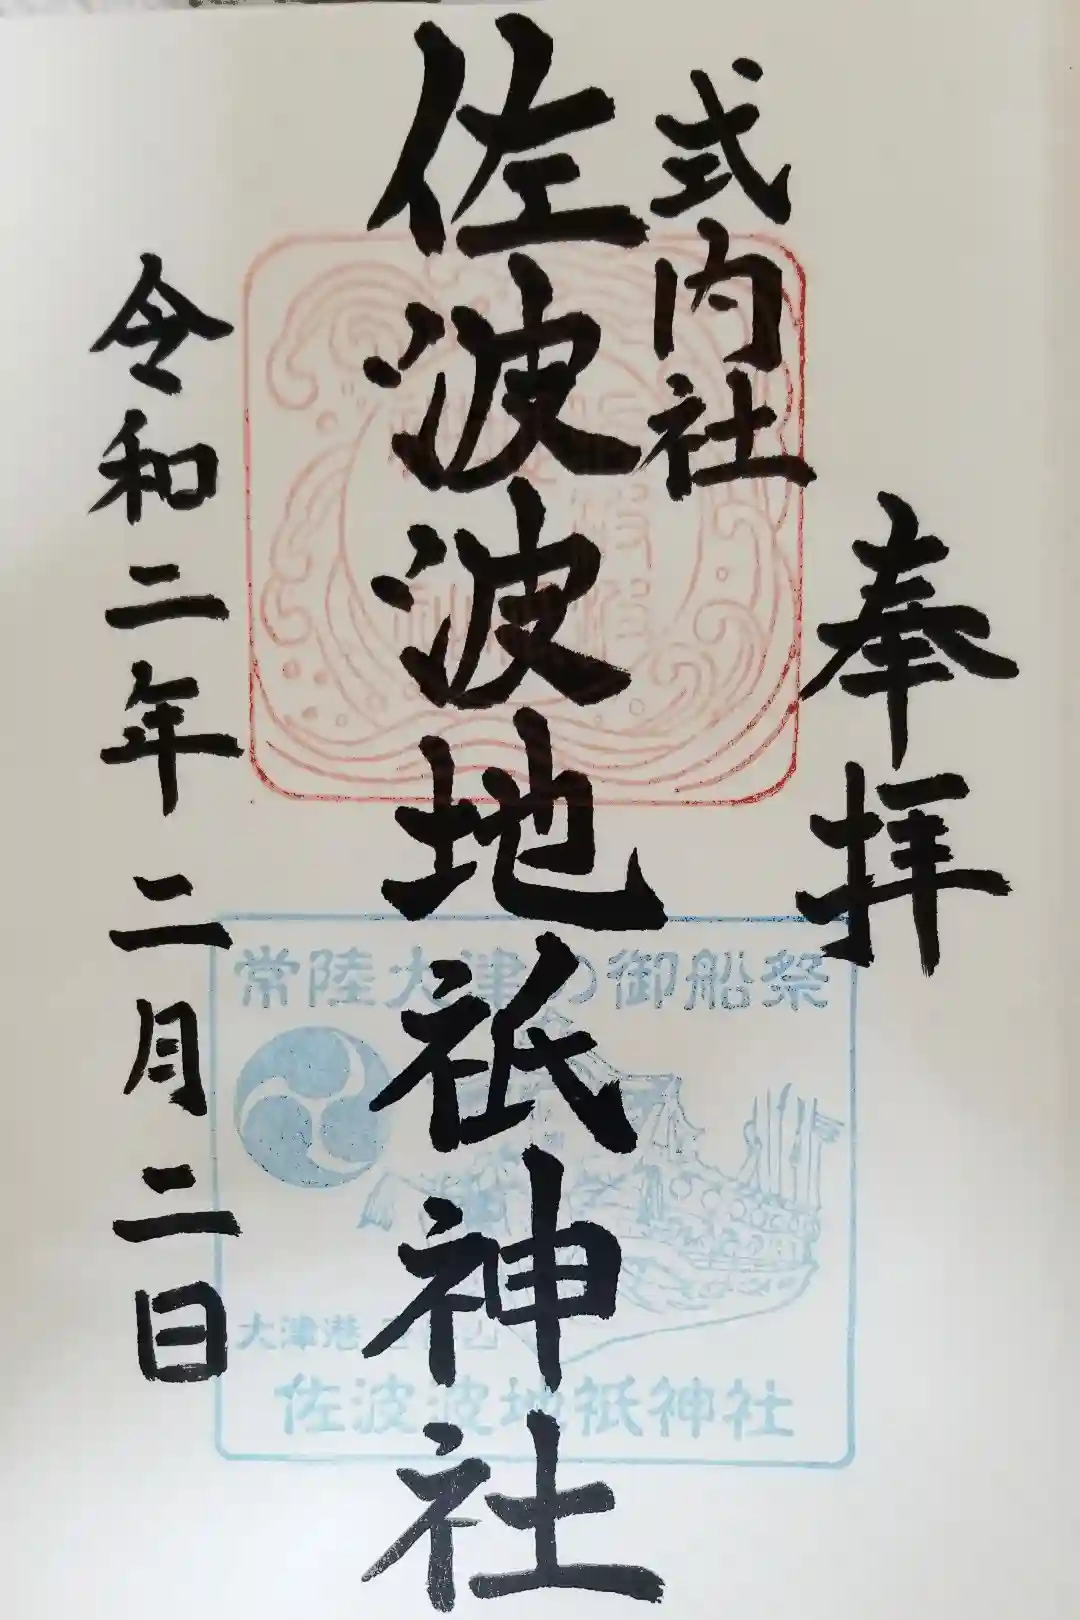 奉拝
式内社
佐波波地祇神社
令和二年二月二日
常陸大津の御船祭
大津港
佐波波地祇神社